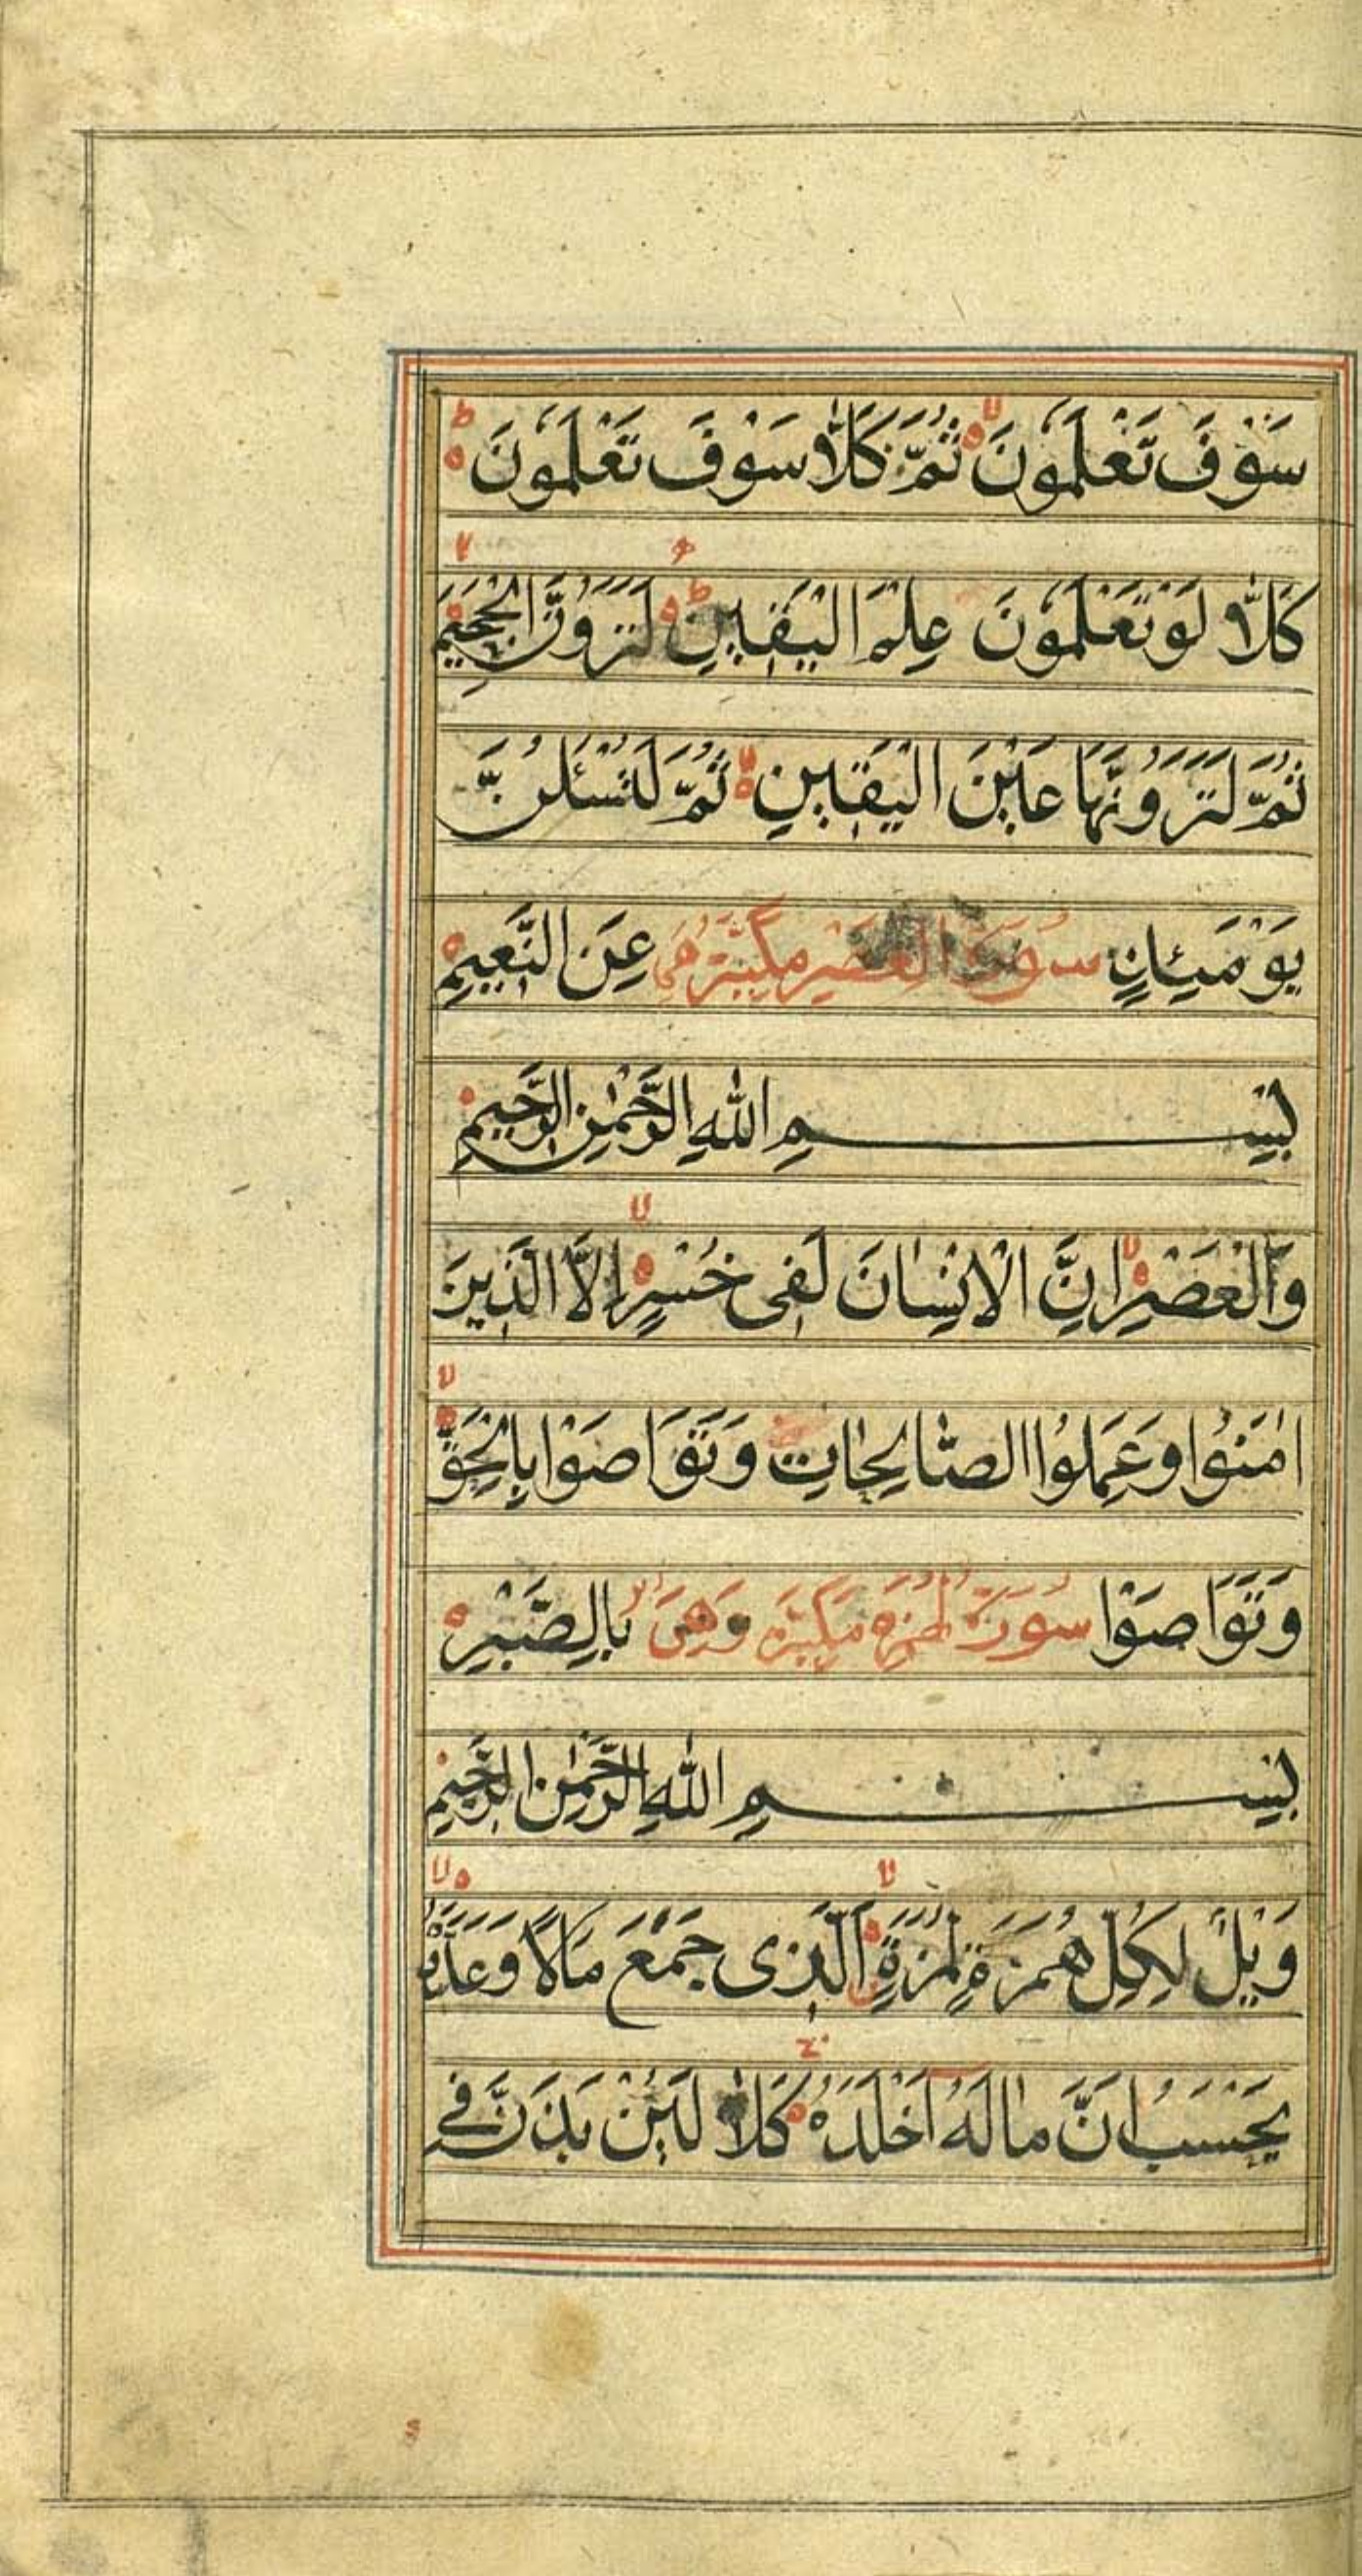 سَوْفَ تَعْلَمُونَ ثُمَّ كَلَّا سَوْفَ تَعْلَمُونَ
كَلَّا لَوْ تَعْلَمُونَ عِلْمَ الْيَقِينِ لَتَرَوُنَّ الْجَحِيمَ
ثُمَّ لَتَرَوُنَّهَا عَيْنَ الْيَقِينِ ثُمَّ لَتُسْئَلُنَّ
يَوْمَئِذٍ سورة العصر مكية هي عَنِ النَّعِيمِ
بِسْمِ اللهِ الرَّحْمٰنِ الرَّحِيمِ
وَالْعَصْرِ اِنَّ الْاِنْسَانَ لَفِى خُسْرٍ اِلَّا الَّذِينَ
اٰمَنُوا وَعَمِلُوا الصَّالِحَاتِ وَتَوَاصَوْا بِالْحَقِّ
وَتَوَاصَوْا سُورَةُ مكية وهي بِالصَّبْرِ
بِسْمِ اللهِ الرَّحْمٰنِ الرَّحِيمِ
وَيْلٌ لِكُلِّ هُمَزَةٍ لُمَزَةٍ الَّذِى جَمَعَ مَالًا وَعَدَّدَهُ
يَحْسَبُ اَنَّ مَالَهُ اَخْلَدَهُ كَلَّا لَيُنْبَذَنَّ فِى